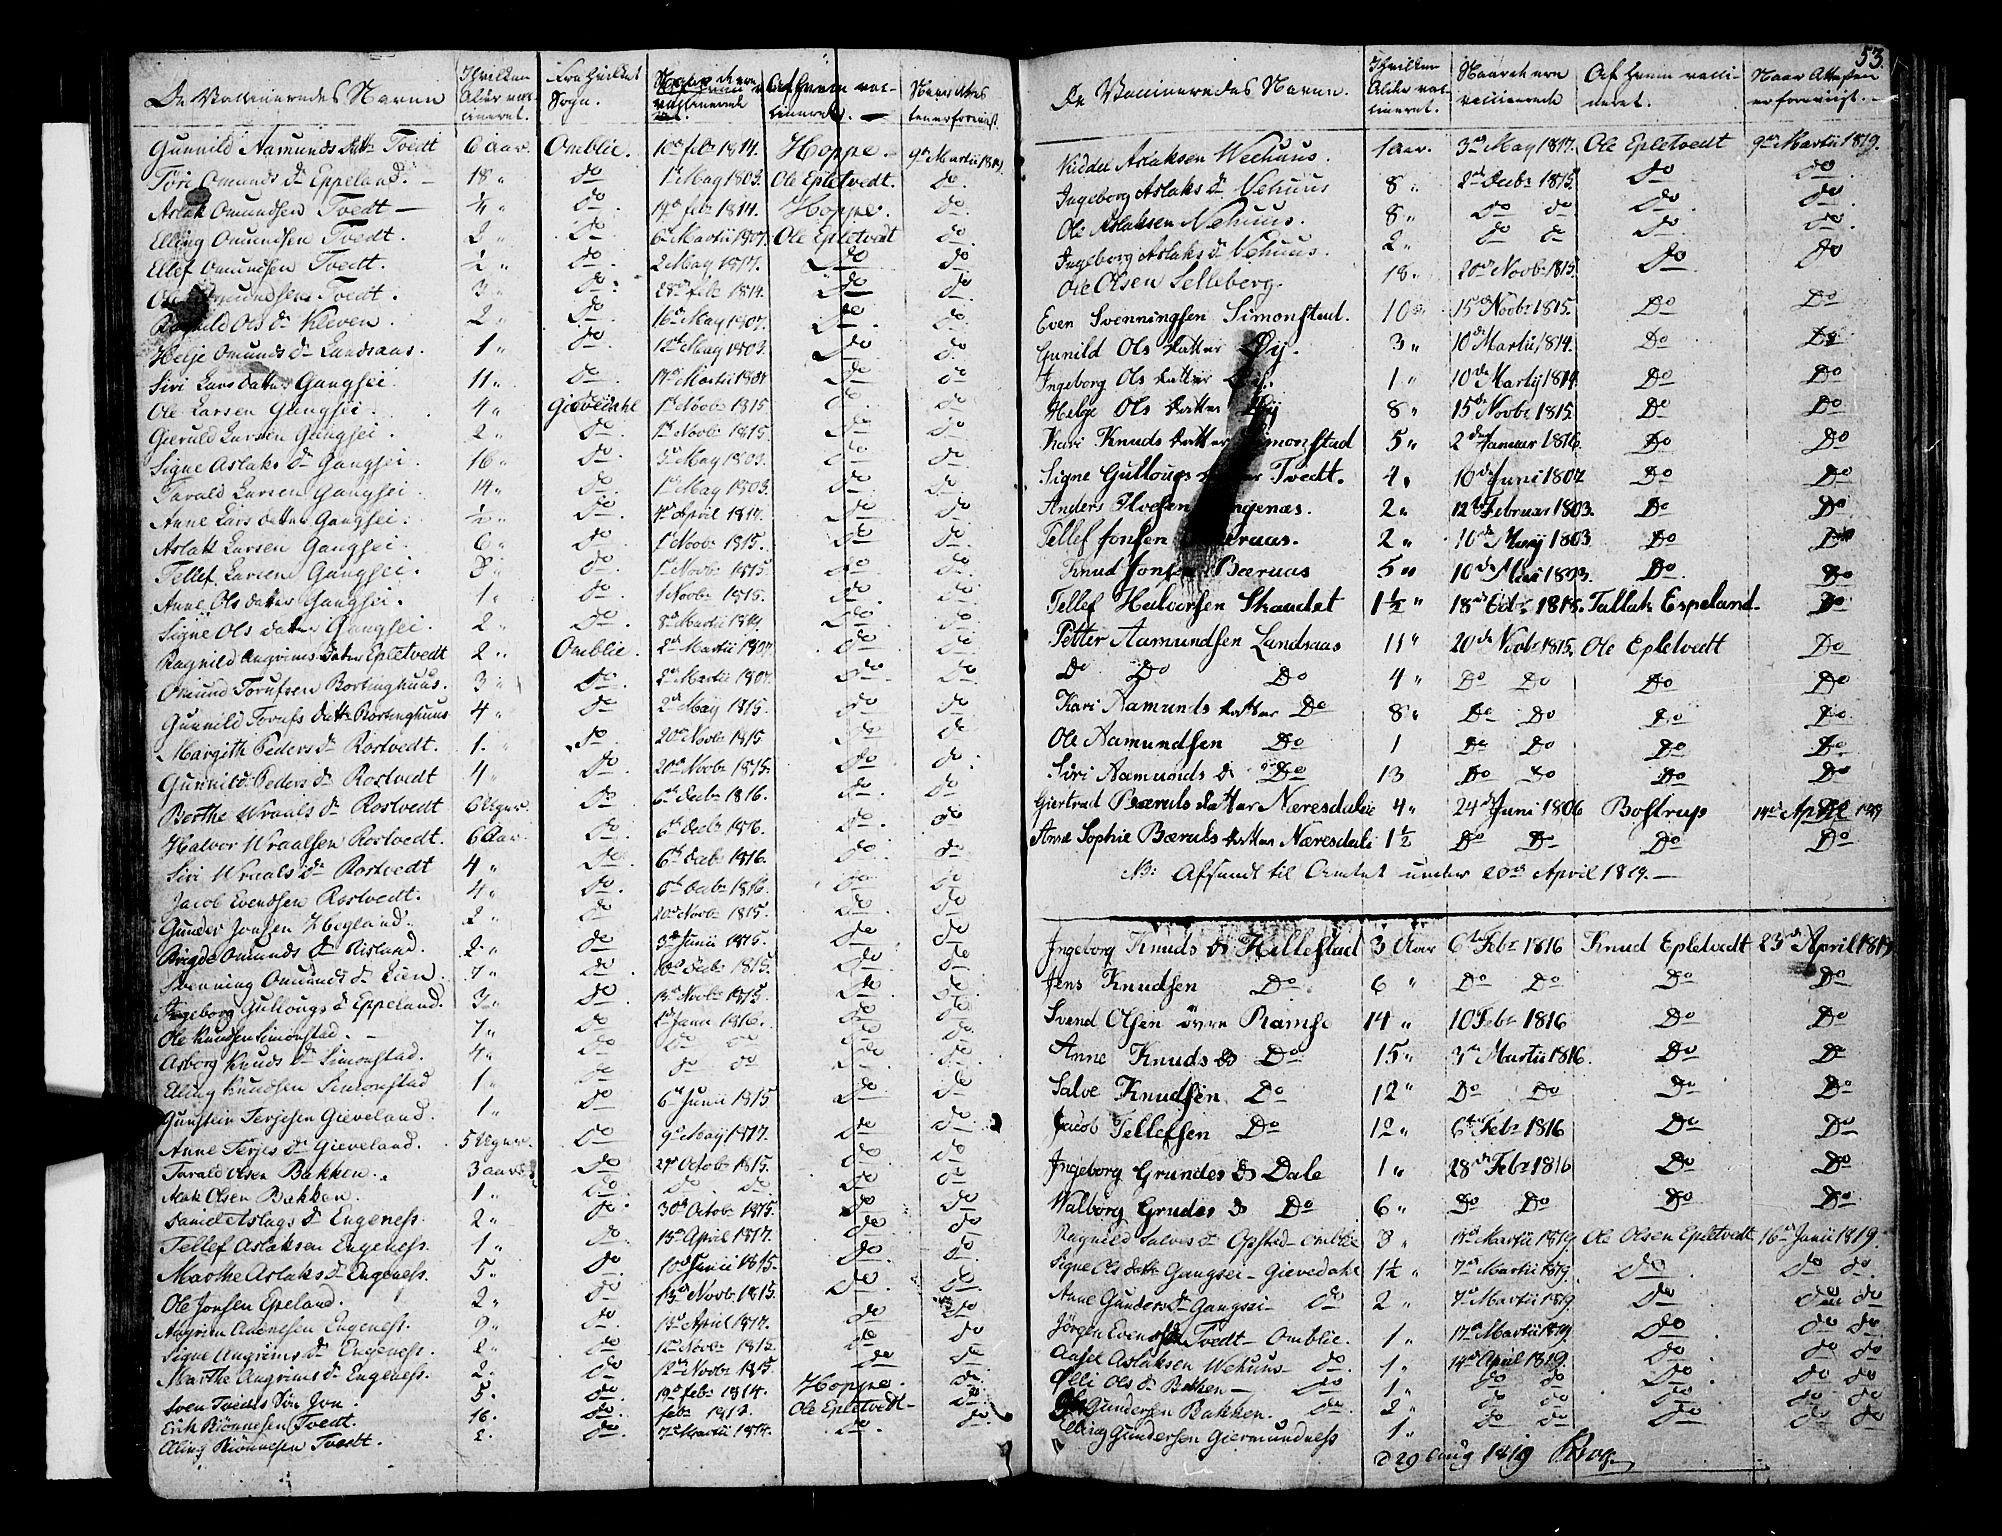 De Vaccineredes Navne | Hvilken Alder vaccineret. | Fra hvilket Sogn. | Naar de ere vaccinerede | Af hvem vaccinerede. | Naar Attesten er foreviist.
Gunnild Aamunds Datter Tvedt | 6 aar. | Omblie. | 10de febr 1814. | Hoppe | 9de Martii 1819.
Tori Omunds Dr Eppeland. | 18 " | Do | 1ste May 1803. | Ole Epletvedt. | Do.
Aslak Omundsen Tvedt | ¼ " | Do | 19de febr 1814. | Hoppe. | Do.
Elling Omundsen Tvedt. | 2 " | Do | 6te Martii 1807. | Ole Epletvedt | Do.
Ellef Omundsen Tvedt. | ½ " | Do. | 2 May 1817. | Do | Do
Omundsen Tvedt. | 3 " | Do. | 28de febr 1814. | Do | Do.
Ragnild Ols Dr Kleven. | 2 " | Do | 16de May 1807. | Do | Do.
Helje Omunds Dr Landsaas. | 1 " | Do | 12te May 1803. | Do | Do.
Siri Lars datter Gangsei. | 11 " | Do. | 17de Martii 1807 | Do | Do
Ole Larsen Gangsei. | 4 " | Gievedahl | 1ste Novbr 1815. | Do | Do.
Gieruld Larsen Gangsei. | 2 " | Do. | 1ste Novbr 1815. | Do | Do.
Signe Aslaks Dr Gangsei. | 16 " | Do. | 3die May 1803. | Do | Do.
Tarald Larsen Gangsei. | 14 " | Do. | 1ste May 1803. | Do | Do.
Anne Lars datter Gangsei. | ½ " | Do. | April 1817. | Do | Do.
Aslak Larsen Gangsei. | 6 " | Do. | 1ste Novbr 1815. | Do | Do.
Tellef Larsen Gangsei. | 8 " | Do. | 1ste Novbr 1815. | Do | Do.
Anne Ols datter Gangsei. | 1 " | Do. | Novbr 1815. | Do | Do.
Signe Ols datter Gangsei. | 2 " | Do. | 8de Martii 1819 | Do | Do.
Ragnild Angrims Datter Epletvedt | 2 " | Omblie. | 2den Martii 1807. | Do | Do.
Omund Torufsen Bortinghuus. | 3 " | Do. | 2den Martii 1807. | Do. | Do.
Gunnild Torufs Datter Bortinghuus | 4 " | Do | 2den May 1815. | Do | Do
Margith Peders Dr Rostvedt. | 1. " | Do. | 20de Novbr 1815 | Do | Do
Gunnild Peders Dr Rostvedt | 4 " | Do. | 20de Novbr 1815. | Do | Do.
Berthe Wraals Dr Rostvedt | 6 Uger. | Do | 6te Decbr 1816. | Do | Do
Halvor Wraalsen Rostvedt. | 6 Aar. | Do. | 6te Decbr 1816. | Do. | Do
Siri Wraals Dr Rostvedt | 4 " | Do. | 6te Decbr 1816. | Do. | Do
Jacob Evensen Rostvedt. | 4 " | Do. | 6te Decbr 1816. | Do | Do
Gunder Jonsen Hegland. | 2 " | Do | 20de Novbr 1815. | Do. | Do
Brigde Omunds Dr Risland. | 2 " | Do | 3die Junii 1815. | Do | Do
Svenning Omunds Dr Lien. | 7 " | Do. | Decbr 1815. | Do. | Do
Ingeborg Gullougs Dr Eppeland. | 3 " | Do. | 13de Novbr 1815 | Do | Do
Ole Knudsen Simonstad. | 7 " | Do | Janu 1816. | Do | Do
Asborg Knuds Dr Simonstad. | 4 " | Do | Do Do | Do | Do
Elling Knudsen Simonstad | 1 " | Do | Do Do | Do | Do
Gunstein Terjesen Gieveland. | 1 " | Do | 6te Junii 1815 | Do | Do
Anne Terjes Dr Gieveland. | 5 Uger. | Do | 9de May 1817. | Do | Do
Tarald Olsen Bakken. | 3 aar | Do | 27de Octobr 1815. | Do | Do
Olsen Bakken. | 1 " | Do | Do Do | Do | Do
Daniel Aslags Dr Engeness. | 2 " | Do | 30de Octobr 1815. | Do | Do
Tellef Aslaksen Engeness. | 1 " | Do | 15de April 1817. | Do | Do
Marthe Aslaks Dr Engeness. | 5 " | Do | 10de Junii 1815. | Do | Do
Ole Jonsen Epeland. | 2 " | Do | 13de Novbr 1815. | Do. | Do
Angrim Aanonsen Engeness. | 9 " | Do | 15de April 1817. | Do | Do
Signe Angrims Dr Engeness. | 2 " | Do | 12te Novbr 1815. | Do | Do
Marthe Angrims Dr Engeness. | 2. | Do | 12te Novbr 1815. | Do | Do
Sven Tvedts Søn Jon. | 5. | Do. | 19de febr 1814. | Hoppe. | Do
Erik Biønnesen Tvedt. | 16. | Do. | febr 1812. | Ole Epletvedt | Do
Elling Biønnesen Tvedt. | 2. | Do. | 7de Martii 1817. | Do. | Do
53.
De Vaccineredes Navne. | Hvilken Alder vaccineret. | Naar de ere vaccinerede | Af hvem vaccineret. | Naar Attesten er foreviist.
Niddel Aslaksen Wehuus. | 1 aar. | 3die May 1817. | Ole Epletvedt | 9de Martii 1819.
Ingeborg Aslaks Dr Vehuus | 8 " | 2den Decbr 1815. | Do | Do
Ole Aslaksen Vehuus. | 8 " | Do Do | Do. | Do
Ingeborg Aslaks Dr Vehuus. | 2 " | Do Do | Do | Do.
Ole Olsen Selleberg. | 18 " | 20de Novbr 1815. | Do | Do
Even Svenningsen Simonstad. | 10 " | 15de Novbr 1815. | Do | Do
Gunild Ols datter Øy. | 3 " | 10de Martii 1814. | Do | Do
Ingeborg Ols datter | 1 " | 10de Martij 1814. | Do | Do
Helge Ols datter Øy | 8 " | 15de Novbr 1815. | Do | Do
Kari Knuds datter Simonstad | 5 " | 2den Januar 1816. | Do | Do
Signe Gullougs datter Tvedt. | 4 " | 16de Juni 1807 | Do | Do
Anders Engenæs. | 2 " | 12te Februar 1803. | Do | Do
Tellef Jonsen Beruaas. | 2 " | 10de May 1803 | Do | Do
Knud Jonsen Bæruaas | 5 " | 10de Mai 1803. | Do | Do
Tellef Halvorsen Skaudet | 1½ " | 18de Octbr 1815. | Tallak Espeland | Do
Petter Aamundsen Landsaas | 11 " | 20de Novbr 1815. | Ole Epletvedt | Do
Do Do Do | 4 " | Do Do | Do | Do
Kari Aamunds datter Do | 8 " | Do Do | Do | Do
Ole Aamundsen Do | 1 | Do Do | Do | Do
Siri Aamunds Dr Do | 13 | Do Do | Do | Do
Giertrud Bæruls datter Næresdalie | 4 " | 24de Juni 1806 | Bostrup | 14de April 1819
Anne Sophie Bæruls datter Næresdali | 1½ | Do Do | Do | Do
NB: Afsendt til Amtet under 20de April 1819.
Ingeborg Knuds Dr Hillestad | 3 Aar | 6te Febr 1816 | Knud Epletvedt | 23de April 1819
Jens Knudsen Do | 6 " | Do Do | Do | Do
Svend Olsen øvre Ramse | 14 " | 10 Febr 1816 | Do | Do
Anne Knuds Dr Do | 15 " | 3die Martii 1816. | Do | Do
Salve Knudsen Do | 12 " | Do Do | Do | Do
Jacob Tellefsen Do | 12 " | 6te Febr 1816 | Do | Do
Ingeborg Grundes Dr Dale | 1 " | 28de Febr 1816 | Do | Do
Walborg Grudes Dr Do | 6 " | Do Do | Do | Do
Ragnild Salves Dr Opstad Omblie | 3 " | Martii 1819. | Ole Olsen Epletvedt | 16de Junii 1819.
Signe Ols datter Gangsei - Gievedahl | 1½ " | 7de Martii 1819. | Do | Do Do.
Anne Gunders Dr Gangsei - Do | 2 " | 7de Martii 1819. | Do | Do Do
Jørgen Evensen Tvedt - Omblie. | 1 " | 17de Martii 1819. | Do | Do Do
Aasel Aslaksen Wehuus - Do. | 1 " | 14de April 1819. | Do | Do Do
Ols Dr Bakken - Do | 1 " | Do Do | Do | Do Do
Gundersen Bakken. Do. | 2 " | Do Do | Do | Do Do
Elling Gundersen Giermundness | 1 " | Do Do | Do | Do Do
D 29 Aug 1819